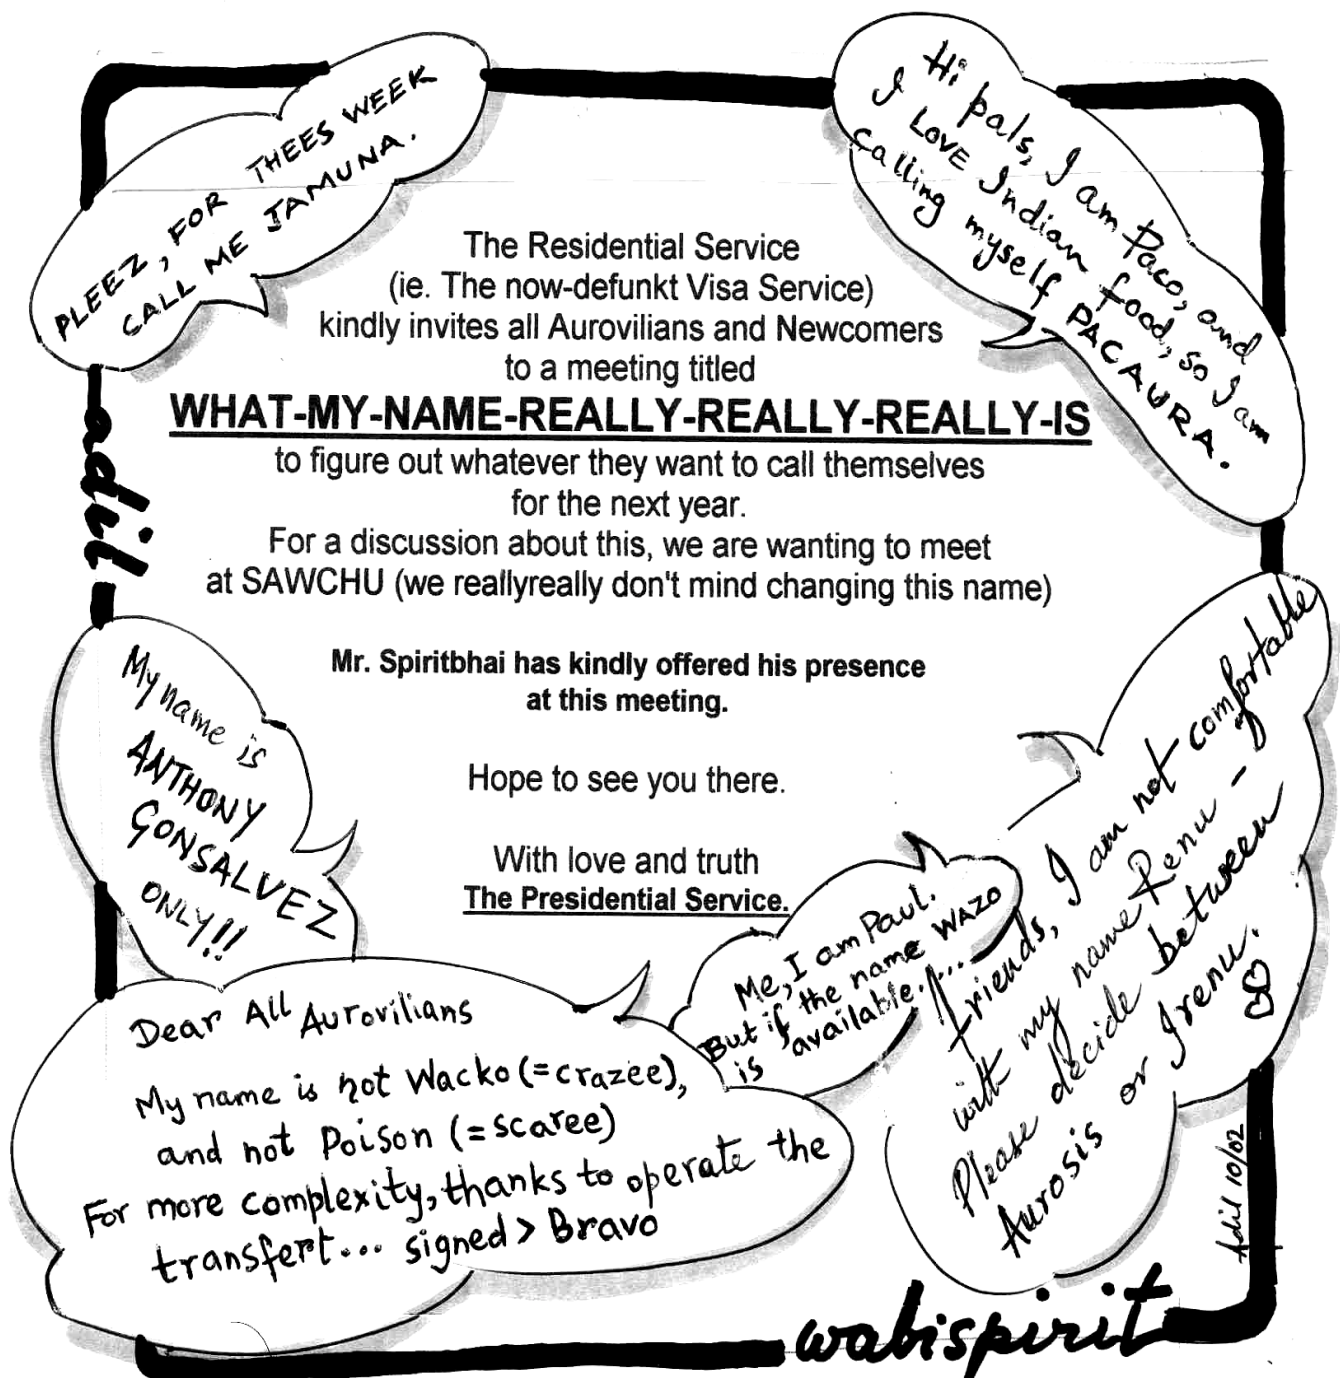 PLEEZ, FOR THEES WEEK
CALL ME JAMUNA.
Hi pals, I am Paco, and
I LOVE Indian food, so I am
calling myself PACAURA.
The Residential Service
(ie. The now-defunkt Visa Service)
kindly invites all Aurovilians and Newcomers
to a meeting titled
WHAT-MY-NAME-REALLY-REALLY-REALLY-IS
to figure out whatever they want to call themselves
for the next year.
For a discussion about this, we are wanting to meet
at SAWCHU (we reallyreally don't mind changing this name)
Mr. Spiritbhai has kindly offered his presence
at this meeting.
Hope to see you there.
With love and truth
The Presidential Service.
adil
My name is
ANTHONY
GONSALVEZ
ONLY!!
Me, I am Paul.
But if the name WAZO
is available....
friends, I am not comfortable
with my name Renu -
Please decide between
Aurosis or Irenu.
Dear All Aurovilians
My name is not Wacko (=crazee),
and not Poison (=scaree)
For more complexity, thanks to operate the
transfert... signed > Bravo
Adil 10/02
wabispirit